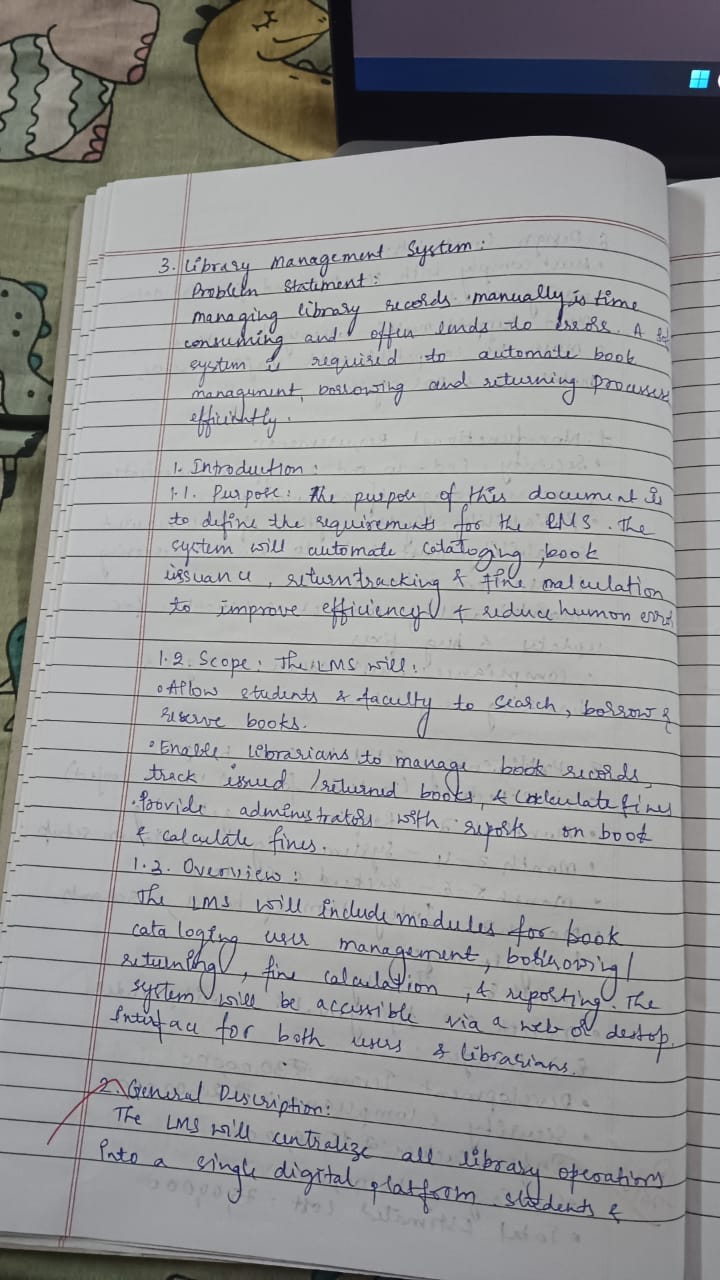 3. Library Management System:
Problem Statement:
managing library records manually is time
consuming and often leads to errors. A
system is required to automate book
management, borrowing and returning processes
efficiently.
1. Introduction:
1.1. Purpose: The purpose of this document is
to define the requirements for the LMS. The
system will automate cataloging, book
issuance, return tracking & fine calculation
to improve efficiency & reduce human error
1.2. Scope: The LMS will:
• Allow students & faculty to search, borrow &
reserve books.
• Enable librarians to manage book records,
track issued / returned books, & calculate fines
• Provide administrators with reports on book
& calculate fines.
1.3. Overview:
The LMS will include modules for book
cataloging user management, borrowing/
returning, fine calculation, & reporting. The
system will be accessible via a web or destop
interface for both users & librarians.
2. General Description:
The LMS will centralize all library operations
into a single digital platform. students &